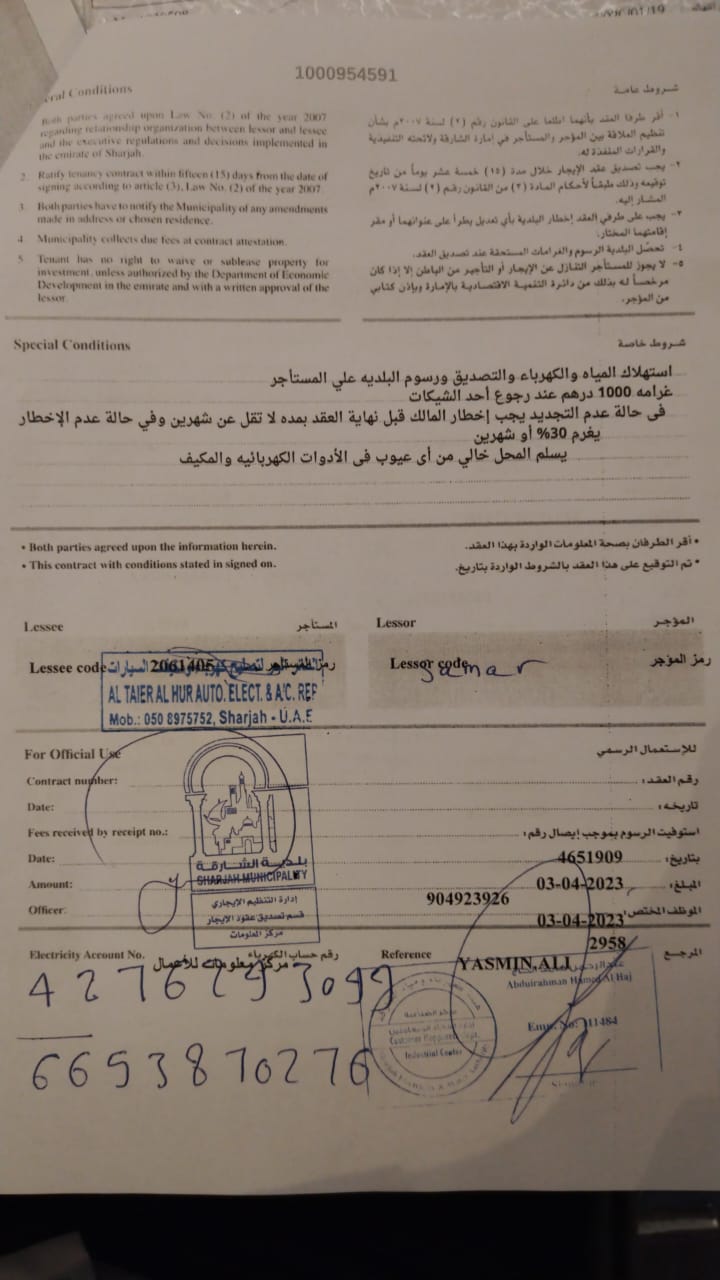 1000954591
eral Conditions
شروط عامة
Both parties agreed upon Law No. (2) of the year 2007
regarding relationship organization between lessor and lessee
and the executive regulations and decisions implemented in
the emirate of Sharjah.
2. Ratify tenancy contract within fifteen (15) days from the date of
signing according to article (3), Law No. (2) of the year 2007.
3. Both parties have to notify the Municipality of any amendments
made in address or chosen residence.
4. Municipality collects due fees at contract attestation.
5. Tenant has no right to waive or sublease property for
investment, unless authorized by the Department of Economic
Development in the emirate and with a written approval of the
lessor.
١- أقر طرفا العقد بأنهما اطلعا على القانون رقم (٢) لسنة ٢٠٠٧م بشأن
تنظيم العلاقة بين المؤجر والمستأجر في إمارة الشارقة ولائحته التنفيذية
والقرارات المنفذة له.
٢- يجب تصديق عقد الإيجار خلال مدة (١٥) خمسة عشر يوماً من تاريخ
توقيعه وذلك طبقاً لأحكام المادة (٣) من القانون رقم (٢) لسنة ٢٠٠٧م
المشار إليه.
٣- يجب على طرفي العقد إخطار البلدية بأي تعديل يطرأ على عنوانهما أو مقر
إقامتهما المختار.
٤- تحصّل البلدية الرسوم والغرامات المستحقة عند تصديق العقد.
٥- لا يجوز للمستأجر التنازل عن الإيجار أو التأجير من الباطن إلا إذا كان
مرخصاً له بذلك من دائرة التنمية الاقتصادية بالإمارة وبإذن كتابي
من المؤجر.
Special Conditions
شروط خاصة
استهلاك المياه والكهرباء والتصديق ورسوم البلديه علي المستأجر
غرامه 1000 درهم عند رجوع أحد الشيكات
فى حالة عدم التجديد يجب إخطار المالك قبل نهاية العقد بمده لا تقل عن شهرين وفي حالة عدم الإخطار
يغرم 30% أو شهرين
يسلم المحل خالي من أى عيوب فى الأدوات الكهربائيه والمكيف
• Both parties agreed upon the information herein.
• أقر الطرفان بصحة المعلومات الواردة بهذا العقد.
• This contract with conditions stated in signed on.
• تم التوقيع على هذا العقد بالشروط الواردة بتاريخ.
Lessee
المستأجر
Lessor
المؤجر
Lessee code
2061405
رمز المستأجر
Lessor code
Samar
رمز المؤجر
AL TAIER AL HUR AUTO. ELECT. & A/C. REP
Mob.: 050 8975752, Sharjah - U.A.E
For Official Use
للاستعمال الرسمي
Contract number:
رقم العقد:
Date:
تاريخه:
Fees received by receipt no.:
استوفيت الرسوم بموجب إيصال رقم:
Date:
4651909
بتاريخ:
Amount:
03-04-2023
المبلغ:
Officer:
904923926
03-04-2023
الموظف المختص:
2958
بلدية الشارقة
SHARJAH MUNICIPALITY
إدارة التنظيم الإيجاري
قسم تصديق عقود الإيجار
مركز المعلومات
Electricity Account No.
رقم حساب الكهرباء
مركز معلومات للأعمال
Reference
YASMIN.ALI
المرجع
Abdulrahman Hamad Al Haj
Emp. No: 11484
Industrial Center
66938 70276